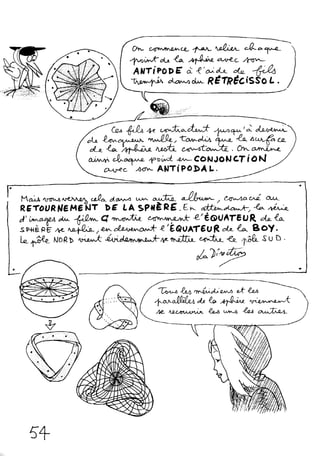 On commence par relier chaque
point de la sphère avec son
ANTIPODE à l'aide de fils
trempés dans du RÉTRÉCISSOL.
Ces fils se contractent jusqu'à devenir
de longueur nulle, tandis que la surface
de la sphère reste constante. On amène
ainsi chaque point en CONJONCTION
avec son ANTIPODAL.
Mais vous verrez cela dans un autre album, consacré au
RETOURNEMENT DE LA SPHÈRE. En attendant, la série
d'images du film G montre comment l'ÉQUATEUR de la
SPHÈRE se replie, en devenant l'ÉQUATEUR de la BOY.
Le pôle NORD vient évidemment se mettre contre le pôle SUD.
La Direction
Tous les méridiens et les
parallèles de la sphère viennent
se recouvrir les uns les autres.
54